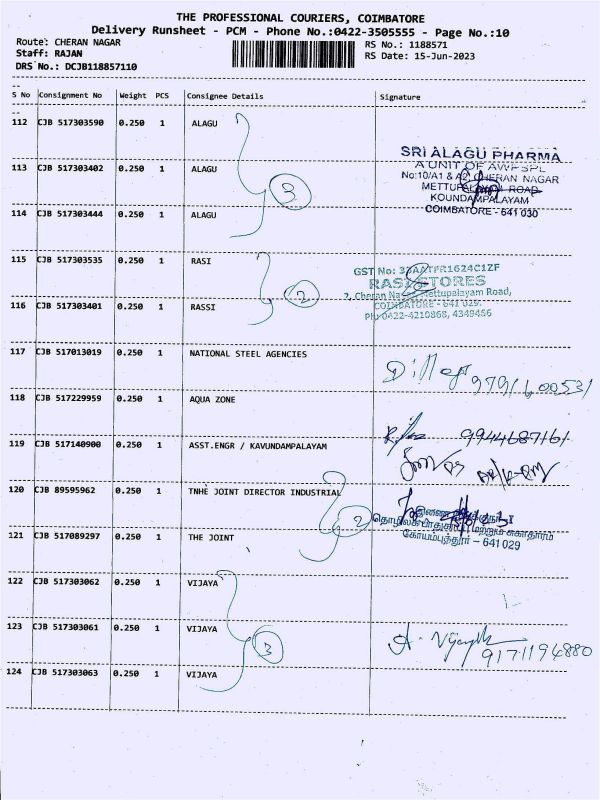 THE PROFESSIONAL COURIERS, COIMBATORE
Delivery Runsheet - PCM - Phone No.:0422-3505555 - Page No.:10
Route: CHERAN NAGAR
RS No.: 1188571
Staff: RAJAN
RS Date: 15-Jun-2023
DRS No.: DCJB118857110
S No Consignment No Weight PCS Consignee Details Signature
112 CJB 517303590 0.250 1 ALAGU
113 CJB 517303402 0.250 1 ALAGU
3
SRI ALAGU PHARMA
A UNIT OF AWPSPL
No:10/A1 & A2, CHERAN NAGAR
METTUPALAYAM ROAD
KOUNDAMPALAYAM
COIMBATORE - 641 030
114 CJB 517303444 0.250 1 ALAGU
115 CJB 517303535 0.250 1 RASI
2
GST No: 33AATFR1624C1ZF
RASI STORES
7, Cheran Nagar, Mettupalayam Road,
COIMBATORE - 641 029.
Ph: 0422-4210868, 4349456
116 CJB 517303401 0.250 1 RASSI
117 CJB 517013019 0.250 1 NATIONAL STEEL AGENCIES
9791600531
118 CJB 517229959 0.250 1 AQUA ZONE
9944687161
119 CJB 517140900 0.250 1 ASST.ENGR / KAVUNDAMPALAYAM
120 CJB 89595962 0.250 1 TNHE JOINT DIRECTOR INDUSTRIAL
2
மற்றும் சுகாதாரம்
கோயம்புத்தூர் - 641 029
121 CJB 517089297 0.250 1 THE JOINT
122 CJB 517303062 0.250 1 VIJAYA
123 CJB 517303061 0.250 1 VIJAYA
3
9171194880
124 CJB 517303063 0.250 1 VIJAYA